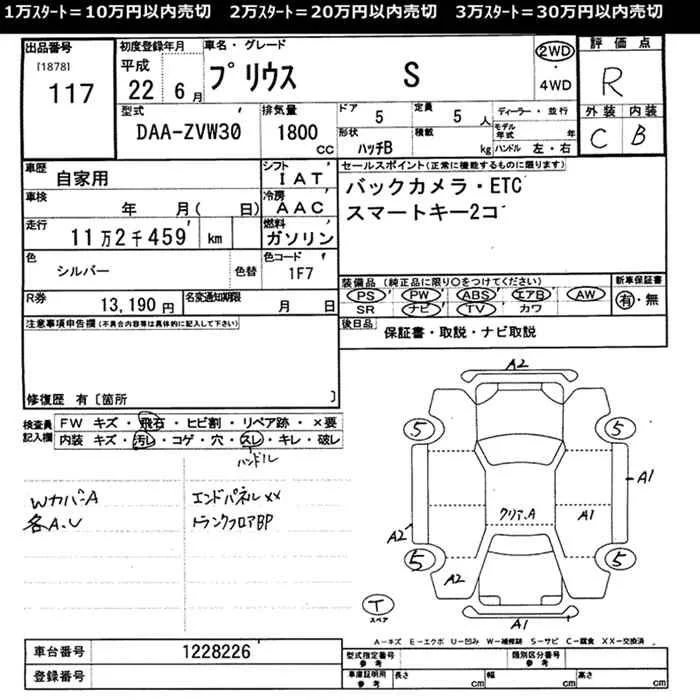 1万ｽﾀｰﾄ＝10万円以内売切　2万ｽﾀｰﾄ＝20万円以内売切　3万ｽﾀｰﾄ＝30万円以内売切
出品番号
[1878]
117
初度登録年月
平成
22年6月
車名・グレード
プリウス　S
2WD
・
4WD
評価点
R
外装　内装
C　B
型式
DAA-ZVW30
排気量
1800
cc
ドア
5
定員
5人
形状
ハッチB
積載
kg
ディーラー・並行
モデル年式　年
ハンドル　左・右
車歴
自家用
シフト
IAT
車検
年　月(　日)
冷房
AAC
走行
11万2千459　km
燃料
ガソリン
色
シルバー
色替
色コード
1F7
R券
13,190円
名変通知期限
月　日
セールスポイント(正常に機能するものに限ります)
バックカメラ・ETC
スマートキー2コ
装備品（純正品に限り○をつけてください）
PS　PW　ABS　エアB　AW
SR　ナビ　TV　カワ
新車保証書
有・無
後日品
保証書・取説・ナビ取説
注意事項申告欄(不具合内容等は具体的に記入して下さい)
修復歴　有〔箇所　〕
検査員記入欄
FW　キズ・飛石・ヒビ割・リペア跡・×要
内装　キズ・汚レ・コゲ・穴・スレ・キレ・破レ
ハンドル
WカバーA
各A.U
エンドパネルXX
トランクフロアBP
A2
5
5
A1
A2
クリア.A
A1
5
5
A2
A1
T
スペア
A－キズ　E－エクボ　U－凹み　W－補修跡　S－サビ　C－腐食　XX－交換済
車台番号
1228226
登録番号
型式指定番号
参考
類別区分番号
参考
車庫証明用
参考
長さ　cm
幅　cm
高さ　cm